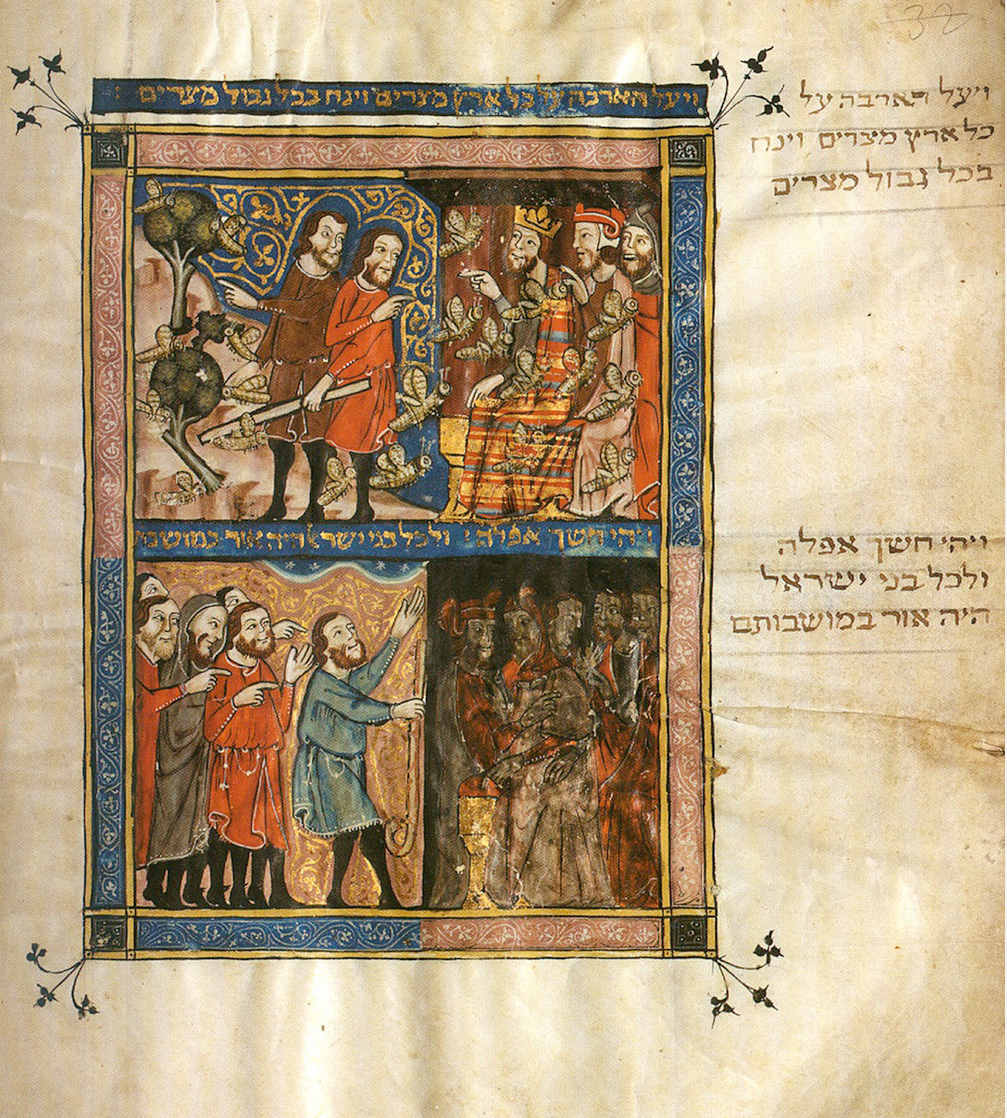 32
ויעל הארבה על כל ארץ מצרים וינח בכל גבול מצרים :
ויעל הארבה על
כל ארץ מצרים וינח
בכל גבול מצרים
ויהי חשך אפלה : ולכל בני ישראל היה אור במושבתם
ויהי חשך אפלה
ולכל בני ישראל
היה אור במושבותם